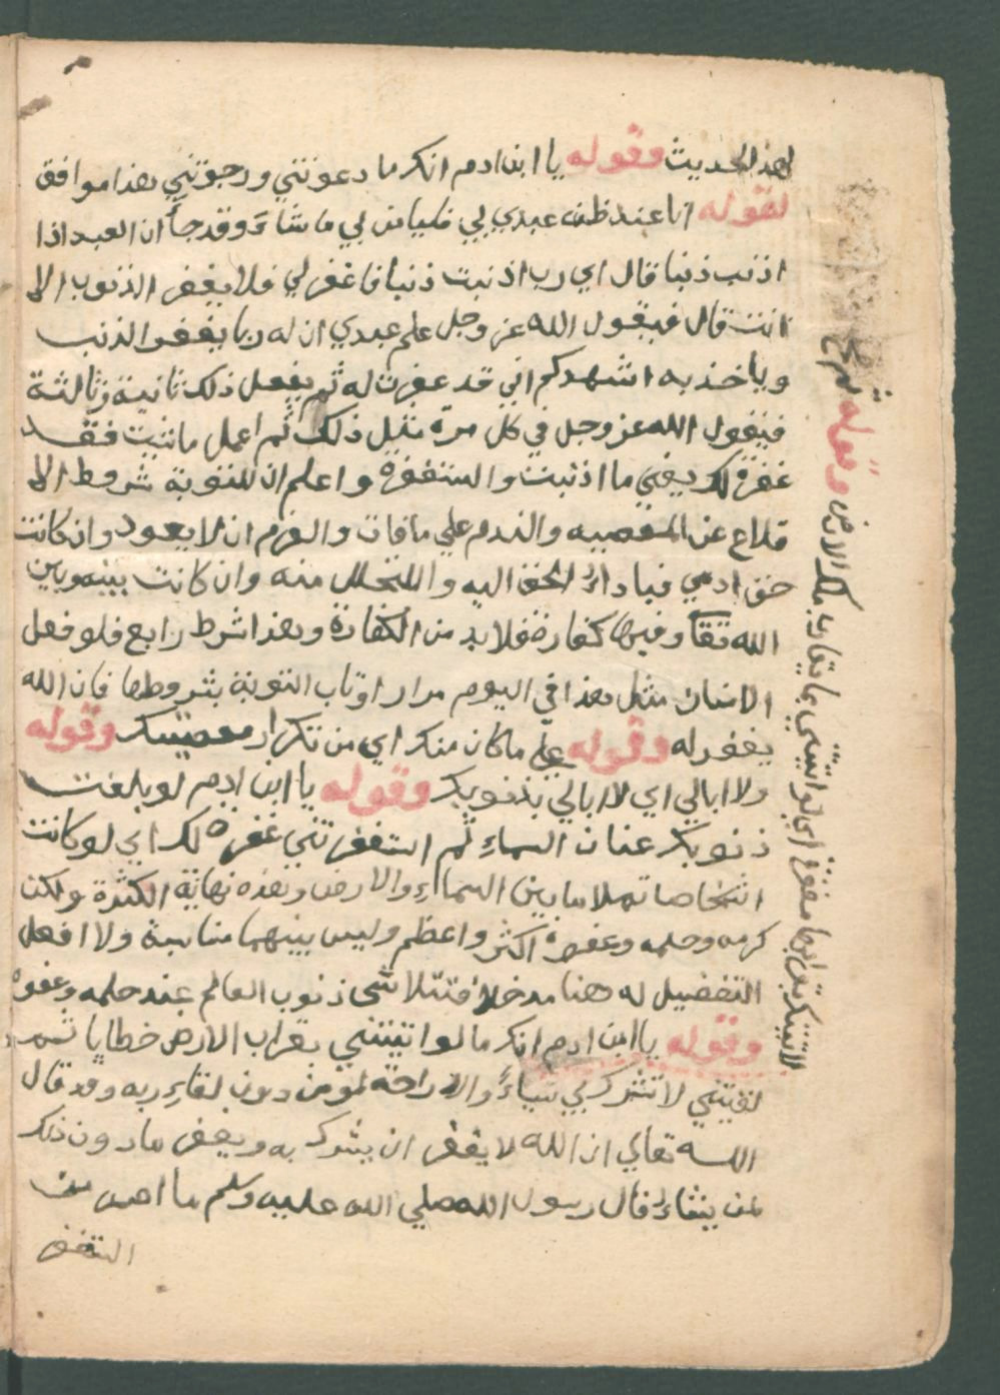 لهذا الحديث وقوله يا ابن ادم انك ما دعوتني ورجوتني هذا موافق
لقوله انا عند ظن عبدي لي فليظن بي ما شاء وقد جا ان العبد اذا
اذنب ذنبا قال اي رب اذنبت ذنبا فاغفر لي فلا يغفر الذنوب الا
انت قال فيقول الله عز وجل علم عبدي ان له ربا يغفر الذنب
وياخذ به اشهدكم اني قد غفرت له ثم يفعل ذلك ثانية وثالثة
فيقول الله عز وجل في كل مرة مثل ذلك ثم اعمل ما شيت فقد
غفرت لك يعني ما اذنبت واستغفرت واعلم ان للتوبة شروط الا
قلاع عن المعصيه والندم علي ما فات والعزم ان لا يعود وان كانت
حق ادمي فباداء الحق اليه والتحلل منه وان كانت بينه وبين
الله تعا وفيها كفارة فلا بد من الكفارة وهذا شرط رابع فلو فعل
الانسان مثل هذا في اليوم مرار او تاب التوبة بشروطها فان الله
يغفر له وقوله علي ما كان منك اي من تكرار معصيتك وقوله
ولا ابالي اي لا ابالي بذنوبك وقوله يا ابن ادم لو بلغت
ذنوبك عنان السماء ثم استغفرتني غفرت لك اي لو كانت
اشخاصا تملا ما بين السماء والارض وهذه نهاية الكثرة ولكن
كرمه وحلمه وعفوه اكثر واعظم وليس بينهما مناسبة ولا افعل
التفضيل له هنا مدخل فتتلاشى ذنوب العالم عند حلمه وعفوه
وقوله يا ابن ادم انك ما لو اتيتني بقراب الارض خطايا ثم
لقيتني لا تشرك بي شياء والا راحة لمؤمن دون لقاء ربه وقد قال
الله تعالي ان الله لا يغفر ان يشرك به ويغفر ما دون ذلك
لمن يشاء قال رسول الله صلي الله عليه وسلم ما اصر من
استغفر
اي لو اتيتني بما يقارب ملك الارض وقوله ثم
لاتيتك بقرابها مغفرة